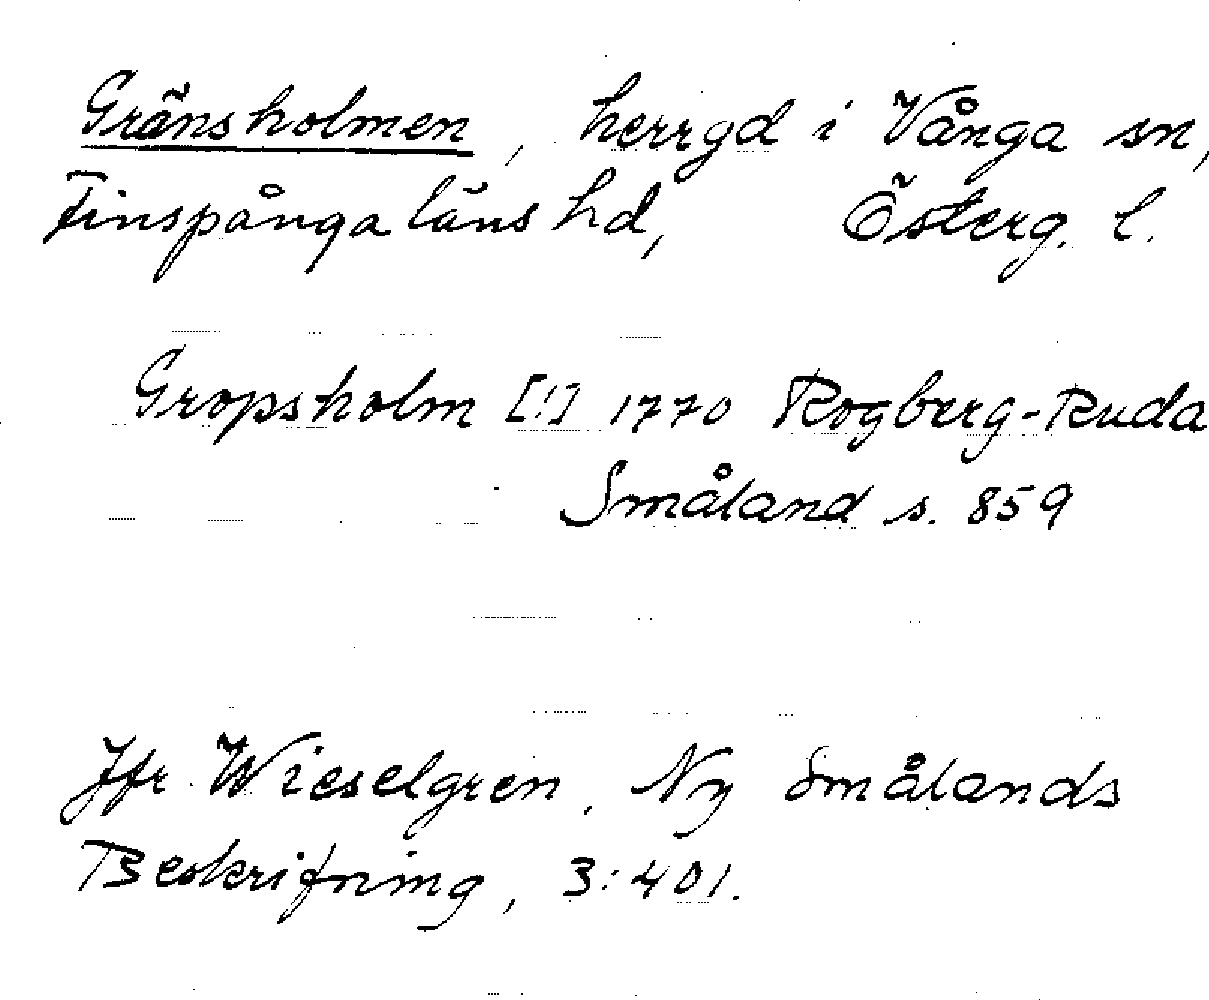 Gränsholmen, herrgd i Vånga sn,
Finspånga läns hd, Österg. l.
Gropsholm [!] 1770 Rogberg-Ruda
Småland s. 859
Jfr Wieselgren, Ny Smålands
Beskrifning, 3:401.